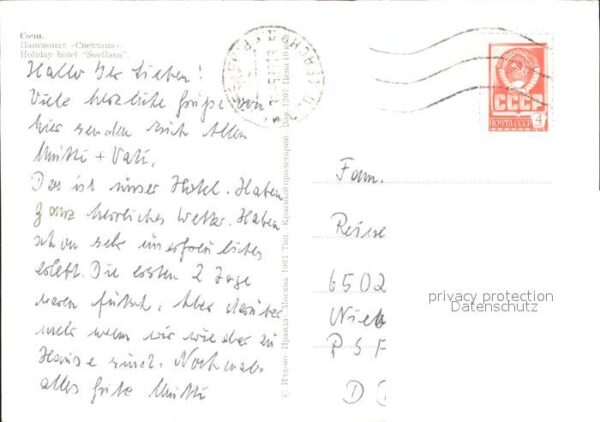 Сочи.
Пансионат «Светлана».
Holiday hotel "Svetlana".
Hallo Ihr Lieben!
Viele herzliche Grüße von
hier senden Euch Allen
Mutti + Vati,
Das ist unser Hotel. Haben
ganz herrliches Wetter. Haben
schon sehr unerfreuliches
erlebt. Die ersten 2 Tage
waren furch. Aber darüber
mehr wenn wir wieder zu
Hause sind. Nochmals
alles Gute Mutti
© Изд-во „Правда“. Москва 1981 Тип. „Красный пролетарий“. Цена
СССР
ПОЧТА СССР 4
Fam.
Reise
6502
D
privacy protection
Datenschutz